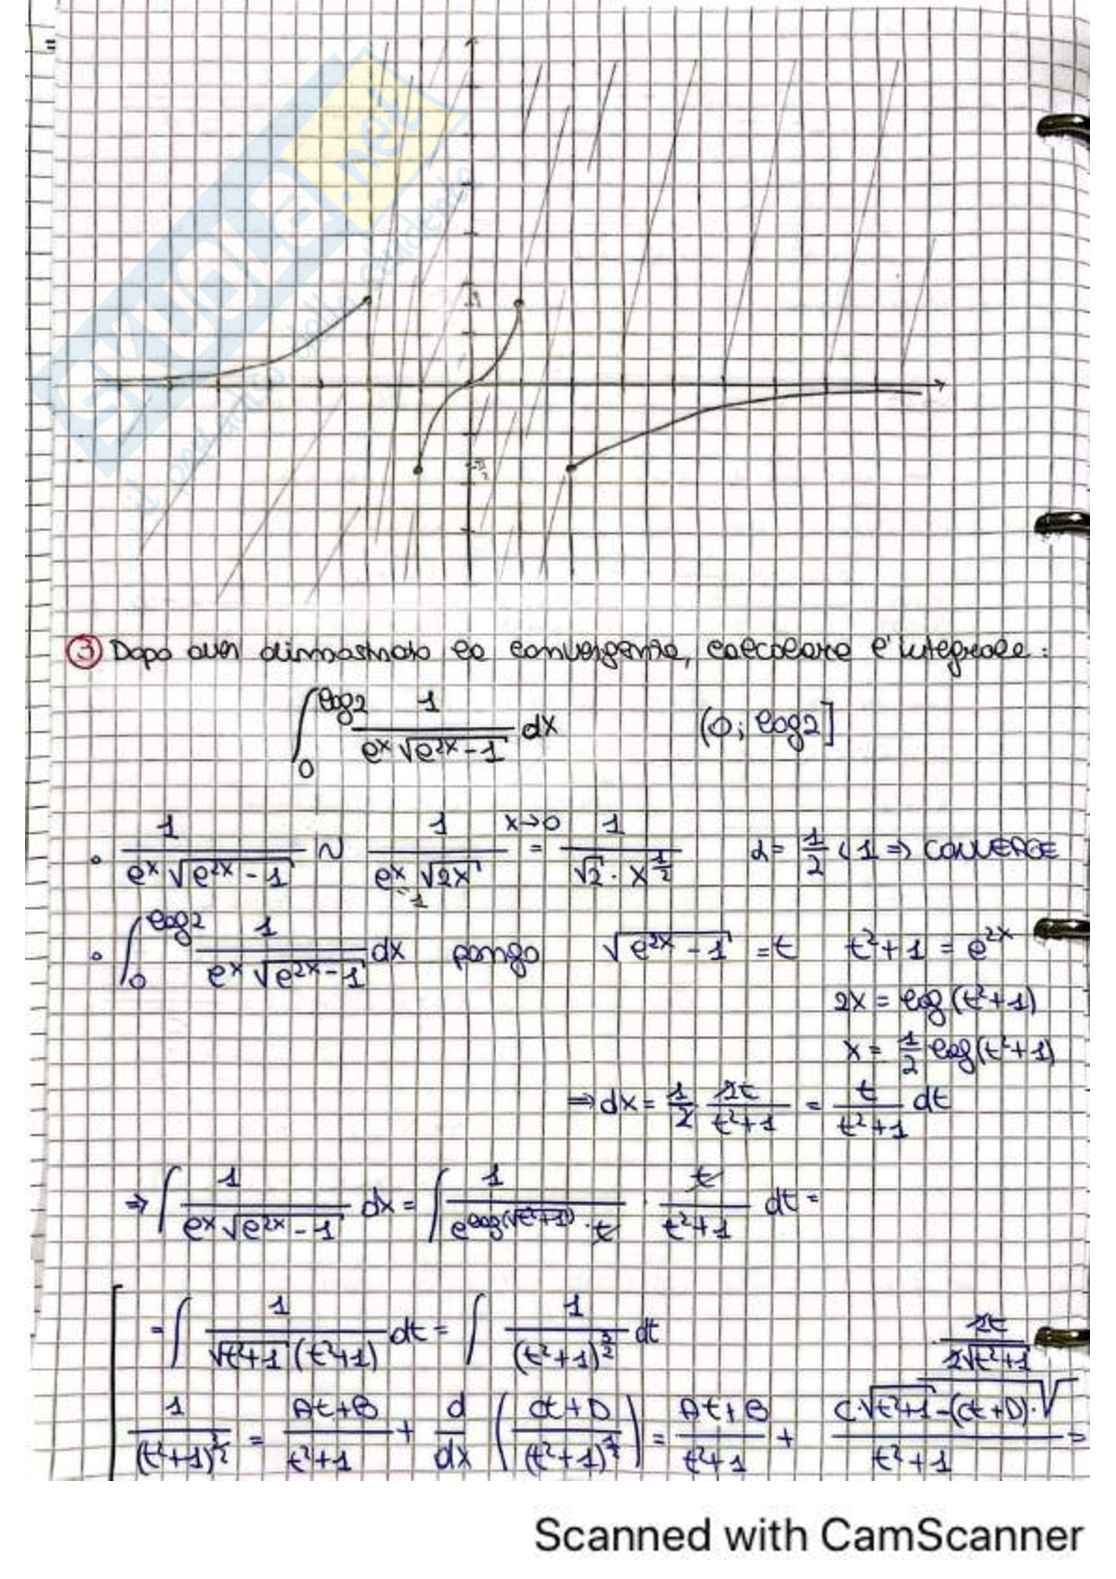 SKUOLA.net
π/2
-π/2
③ Dopo aver dimostrato la convergenza, calcolare l'integrale:
∫₀^{log2} 1/(eˣ √(e²ˣ-1)) dx (0; log2]
• 1/(eˣ √(e²ˣ-1)) ~ 1/(eˣ √(2x)) = 1/(√2 · x^{1/2}) x→0 α = 1/2 < 1 ⇒ CONVERGE
→1
• ∫₀^{log2} 1/(eˣ √(e²ˣ-1)) dx pongo √(e²ˣ-1) = t t²+1 = e²ˣ
2x = log(t²+1)
x = 1/2 log(t²+1)
⇒ dx = 1/2 2t/(t²+1) = t/(t²+1) dt
⇒ ∫ 1/(eˣ √(e²ˣ-1)) dx = ∫ 1/(e^{log(√(t²+1))} · t) · t/(t²+1) dt =
= ∫ 1/(√(t²+1) (t²+1)) dt = ∫ 1/(t²+1)^{3/2} dt 2t/(2√(t²+1))
1/(t²+1)^{3/2} = (At+B)/(t²+1) + d/dx ((Ct+D)/(t²+1)^{1/2}) = (At+B)/(t²+1) + (C√(t²+1) - (Ct+D)·√)/(t²+1) =
Scanned with CamScanner